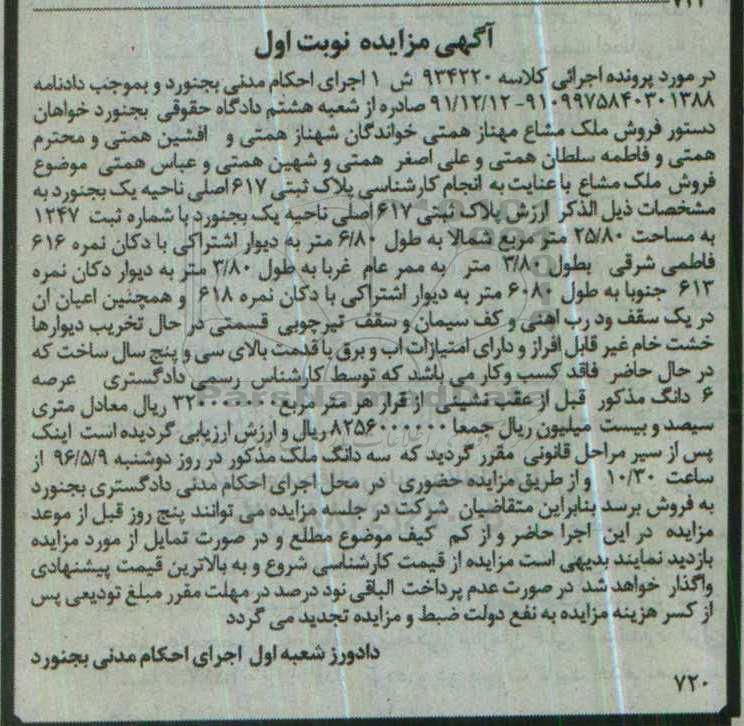 آگهی مزایده نوبت اول
در مورد پرونده اجرائی کلاسه ۹۳۴۲۲۰ ش ۱ اجرای احکام مدنی بجنورد و بموجب دادنامه
۹۱۰۹۹۷۵۸۴۰۳۰۱۳۸۸-۹۱/۱۲/۱۲ صادره از شعبه هشتم دادگاه حقوقی بجنورد خواهان
دستور فروش ملک مشاع مهناز همتی خواندگان شهناز همتی و افشین همتی و محترم
همتی و فاطمه سلطان همتی و علی اصغر همتی و شهین همتی و عباس همتی موضوع
فروش ملک مشاع با عنایت به انجام کارشناسی پلاک ثبتی ۶۱۷ اصلی ناحیه یک بجنورد به
مشخصات ذیل الذکر ارزش پلاک ثبتی ۶۱۷ اصلی ناحیه یک بجنورد با شماره ثبت ۱۲۴۷
به مساحت ۲۵/۸۰ متر مربع شمالا به طول ۶/۸۰ متر به دیوار اشتراکی با دکان نمره ۶۱۶
فاطمی شرقی بطول ۳/۸۰ متر به ممر عام غربا به طول ۳/۸۰ متر به دیوار دکان نمره
۶۱۳ جنوبا به طول ۶۰۸۰ متر به دیوار اشتراکی با دکان نمره ۶۱۸ و همچنین اعیان ان
در یک سقف ود رب اهنی و کف سیمان و سقف تیرچوبی قسمتی در حال تخریب دیوارها
خشت خام غیر قابل افراز و دارای امتیازات اب و برق با قدمت بالای سی و پنج سال ساخت که
در حال حاضر فاقد کسب وکار می باشد که توسط کارشناس رسمی دادگستری عرصه
۶ دانگ مذکور قبل از عقب نشینی از قرار هر متر مربع ۳۲۰۰۰۰۰۰۰ ریال معادل متری
سیصد و بیست میلیون ریال جمعا ۸۲۵۶۰۰۰۰۰۰ ریال و ارزش ارزیابی گردیده است اینک
پس از سیر مراحل قانونی مقرر گردید که سه دانگ ملک مذکور در روز دوشنبه ۹۶/۵/۹ از
ساعت ۱۰/۳۰ و از طریق مزایده حضوری در محل اجرای احکام مدنی دادگستری بجنورد
به فروش برسد بنابراین متقاضیان شرکت در جلسه مزایده می توانند پنج روز قبل از موعد
مزایده در این اجرا حاضر و از کم کیف موضوع مطلع و در صورت تمایل از مورد مزایده
بازدید نمایند بدیهی است مزایده از قیمت کارشناسی شروع و به بالاترین قیمت پیشنهادی
واگذار خواهد شد در صورت عدم پرداخت الباقی نود درصد در مهلت مقرر مبلغ تودیعی پس
از کسر هزینه مزایده به نفع دولت ضبط و مزایده تجدید می گردد
دادورز شعبه اول اجرای احکام مدنی بجنورد
۷۲۰